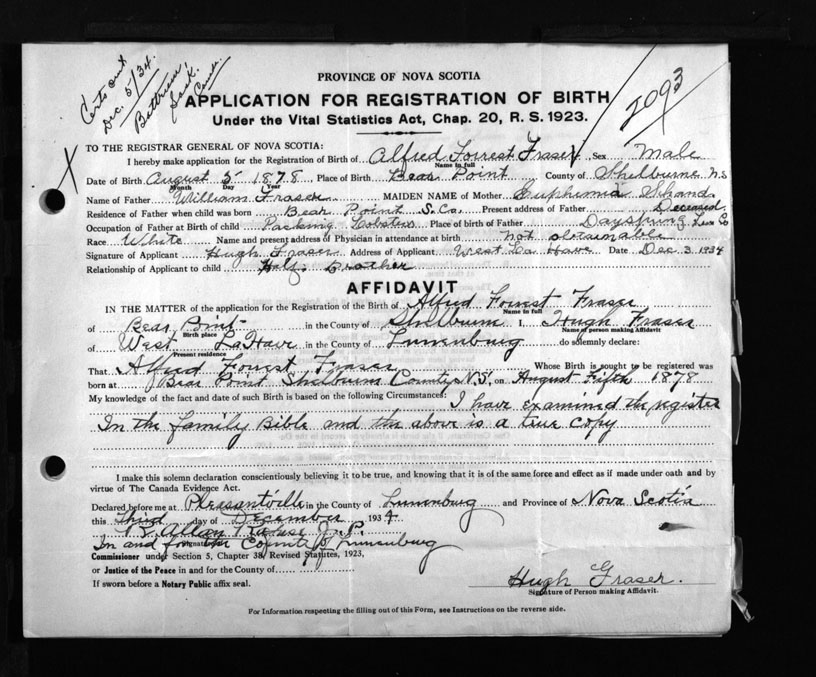 Certs out
Dec. 5/34.
Battrum
Sask.
2093
PROVINCE OF NOVA SCOTIA
APPLICATION FOR REGISTRATION OF BIRTH
Under the Vital Statistics Act, Chap. 20, R. S. 1923.
TO THE REGISTRAR GENERAL OF NOVA SCOTIA:
I hereby make application for the Registration of Birth of Alfred Forrest Fraser Sex Male
Name in full
Date of Birth August 5 1878 Place of Birth Bear Point County of Shelburne N.S
Month Day Year
Name of Father William Fraser MAIDEN NAME of Mother Euphemia Shand
Residence of Father when child was born Bear Point S. Co. Present address of Father Deceased
Occupation of Father at Birth of child Packing Lobsters Place of birth of Father Dayspring Lun Co
Race White Name and present address of Physician in attendance at birth not obtainable
Signature of Applicant Hugh Fraser Address of Applicant West La Have Date Dec 3 1934
Relationship of Applicant to child Half Brother
AFFIDAVIT
IN THE MATTER of the application for the Registration of the Birth of Alfred Forrest Fraser
Name in full
of Bear Point in the County of Shelburn I, Hugh Fraser
Birth place Name of person making Affidavit
of West LaHave in the County of Lunenburg do solemnly declare:
Present residence
That Alfred Forrest Fraser Whose Birth is sought to be registered was
born at Bear Point Shelburne County N.S. on August Fifth 1878
My knowledge of the fact and date of such Birth is based on the following Circumstances: I have examined the register
In the family Bible and the above is a true copy
I make this solemn declaration conscientiously believing it to be true, and knowing that it is of the same force and effect as if made under oath and by
virtue of The Canada Evidence Act.
Declared before me at Pleasantville in the County of Lunenburg and Province of Nova Scotia
this third day of December 1934.
R. Allan J. P.
In and for the County of Lunenburg
Commissioner under Section 5, Chapter 38, Revised Statutes, 1923,
or Justice of the Peace in and for the County of
If sworn before a Notary Public affix seal.
Hugh Fraser.
Signature of Person making Affidavit.
For Information respecting the filling out of this Form, see Instructions on the reverse side.